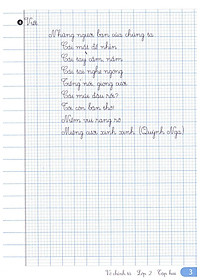 4 Viết
Những người bạn của chúng ta
Cái mắt để nhìn
Cái tay cầm nắm
Cái tai nghe ngóng
Tiếng nói, giọng cười
Cái mũi đâu rồi?
Tơ còn bạn thơ
Niềm vui rạng rỡ
Miệng cười xinh xinh (Quỳnh Nga)
Vở chính tả Lớp 2 Tập hai
3